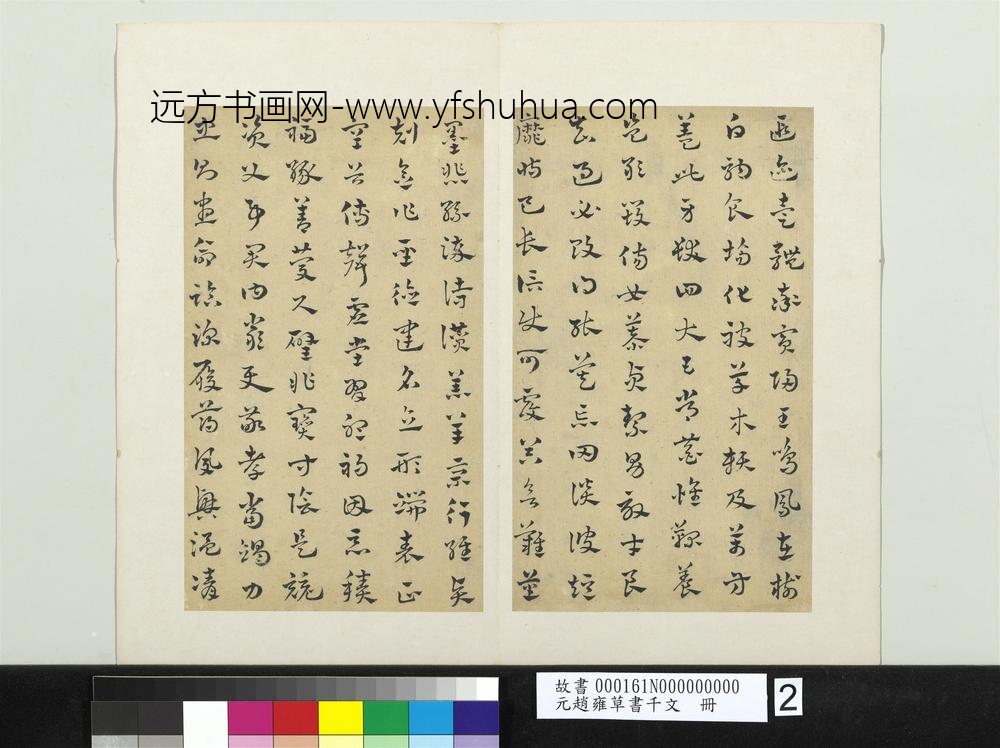 远方书画网-www.yfshuhua.com
遐邇壹體率賓歸王鳴鳳在樹
白駒食場化被草木賴及萬方
蓋此身髮四大五常恭惟鞠養
豈敢毀傷女慕貞絜男效才良
知過必改得能莫忘罔談彼短
靡恃己長信使可覆器欲難量
墨悲絲染詩讚羔羊景行維賢
剋念作聖德建名立形端表正
空谷傳聲虛堂習聽禍因惡積
福緣善慶尺璧非寶寸陰是競
資父事君曰嚴與敬孝當竭力
忠則盡命臨深履薄夙興溫凊
故書 000161N000000000
元趙雍草書千文 冊
2